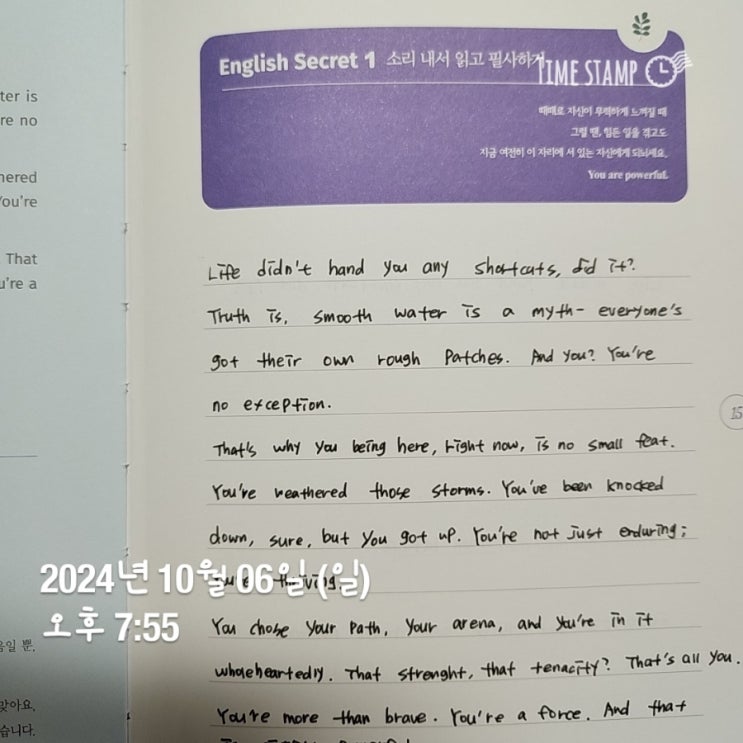 English Secret 1 소리 내서 읽고 필사하기
TIME STAMP
때때로 자신이 무력하게 느껴질 때
그럴 땐, 힘든 일을 겪고도
지금 여전히 이 자리에 서 있는 자신에게 되뇌세요.
You are powerful.
Life didn't hand you any shortcuts, did it?
Truth is, smooth water is a myth- everyone's
got their own rough patches. And you? You're
no exception.
That's why you being here, right now, is no small feat.
You're weathered those storms. You've been knocked
down, sure, but you got up. You're not just enduring;
thriving.
You chose your path, your arena, and you're in it
wholeheartedly. That strenght, that tenacity? That's all you.
You're more than brave. You're a force. And that
15
ter is
re no
hered
You're
That
u're a
음일 뿐,
맞아요.
습니다.
2024년 10월 06일 (일)
오후 7:55